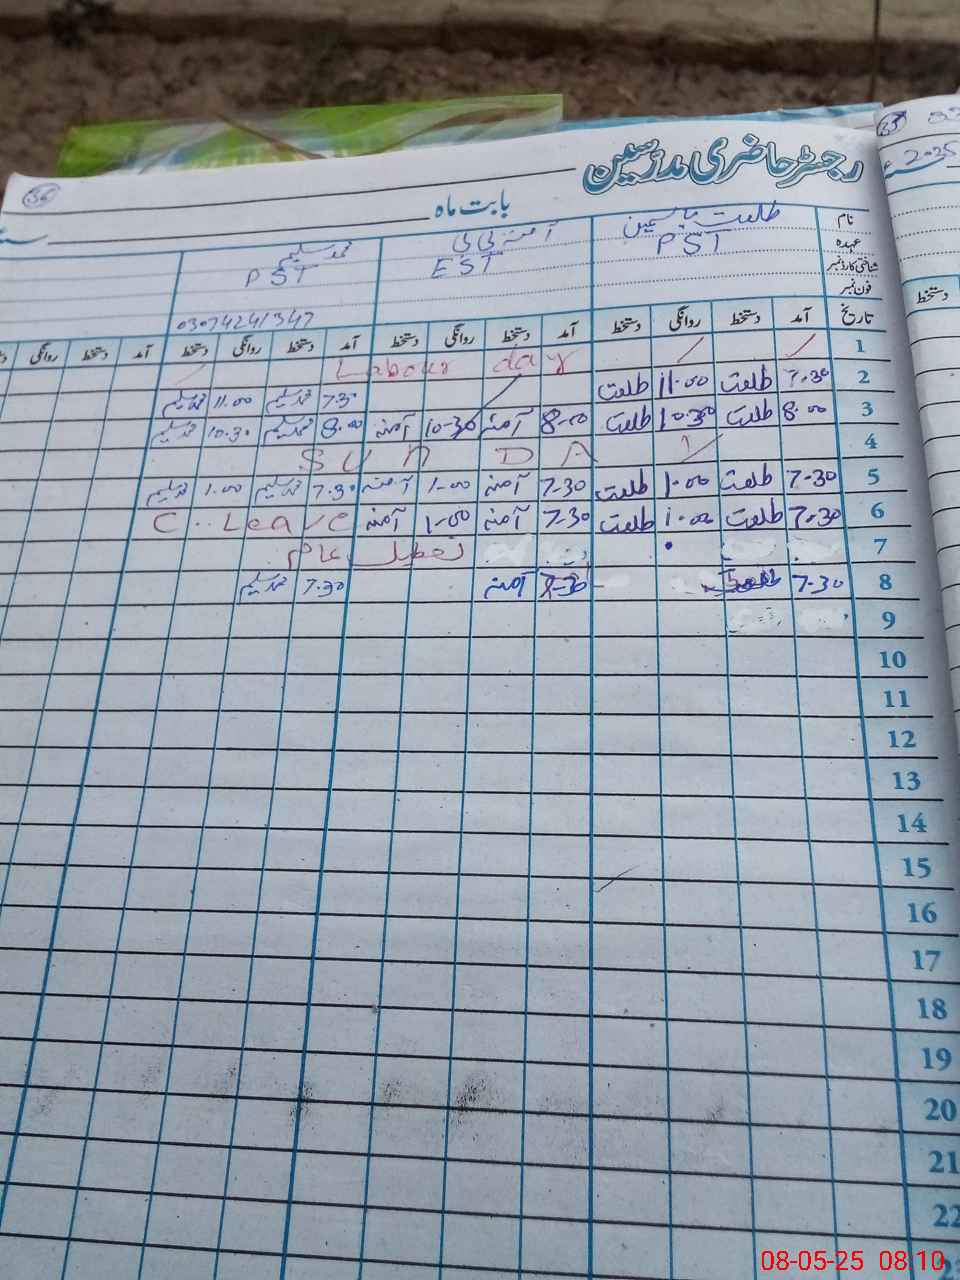 36
33
رجسٹر حاضری مدرسین
بابت ماہ
2025
نام طلعت یاسمین آمنہ بی بی محمد سلیم
عہدہ PST EST PST
شناختی کارڈ نمبر
فون نمبر 03074241347
تاریخ آمد دستخط روانگی دستخط آمد دستخط روانگی دستخط آمد دستخط روانگی دستخط آمد دستخط روانگی
دستخط
1 Labour day
2 7.30 طلعت 11.00 طلعت 7.30 محمد سلیم 11.00 محمد سلیم
3 8.00 طلعت 10.30 طلعت 8-00 آمنہ 10-30 آمنہ 8.00 محمد سلیم 10.30 محمد سلیم
4 SUNDAY
5 7.30 طلعت 1.00 طلعت 7-30 آمنہ 1-00 آمنہ 7.30 محمد سلیم 1.00 محمد سلیم
6 7.30 طلعت 1.00 طلعت 7-30 آمنہ 1-00 آمنہ C. Leave
7 تعطیل عام
8 7-30 طلعت 7-30 آمنہ 7.30 محمد سلیم
9
10
11
12
13
14
15
16
17
18
19
20
21
22
23
08-05-25 08:10